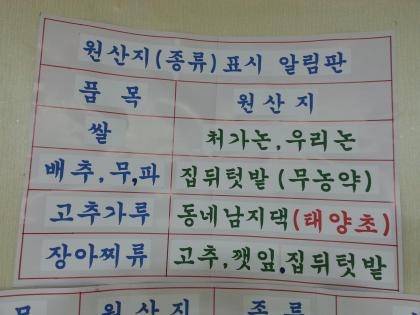 원산지(종류)표시 알림판
품 목 원 산 지
쌀 처가논,우리논
배추,무,파 집뒤텃밭(무농약)
고추가루 동네남지댁(태양초)
장아찌류 고추,깻잎.집뒤텃밭
원 산 지 종 류